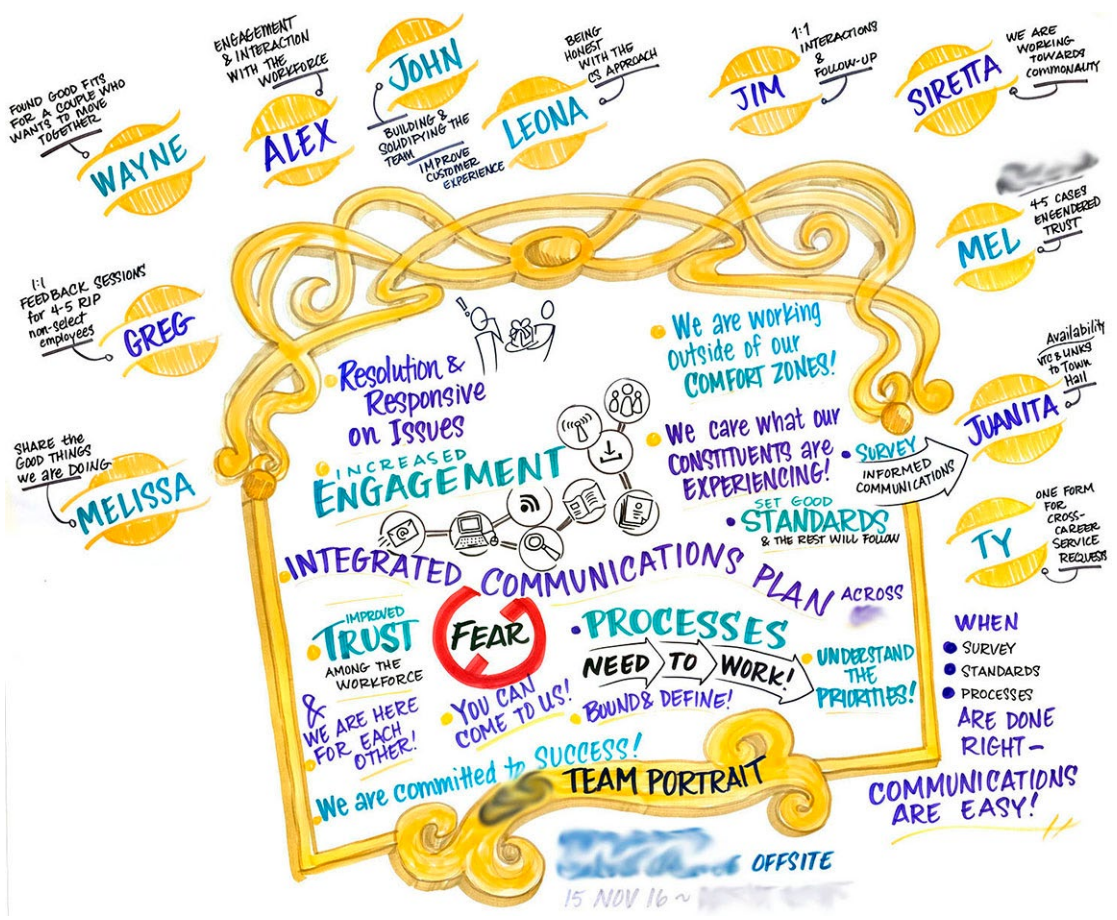 FOUND GOOD FITS
FOR A COUPLE WHO
WANTS TO MOVE
TOGETHER
WAYNE
ENGAGEMENT
& INTERACTION
WITH THE
WORKFORCE
ALEX
JOHN
BUILDING &
SOLIDIFYING THE
TEAM
IMPROVE
CUSTOMER
EXPERIENCE
BEING
HONEST
WITH THE
CS APPROACH
LEONA
1:1
INTERACTIONS
&
FOLLOW-UP
JIM
WE ARE
WORKING
TOWARDS
COMMONALITY
SIRETTA
4-5 CASES
ENGENDERED
TRUST
MEL
1:1
FEEDBACK SESSIONS
for 4-5 RIP
non-select
employees
GREG
Availability
VTC & LINKS
to Town
Hall
JUANITA
SHARE the
GOOD THINGS
we are DOING
MELISSA
ONE FORM
FOR
CROSS-
CAREER
SERVICE
REQUESTS
TY
Resolution &
Responsive
on Issues
INCREASED
ENGAGEMENT
We are working
outside of our
COMFORT ZONES!
We care what our
CONSTITUENTS are
EXPERIENCING!
SURVEY
INFORMED
COMMUNICATIONS
SET GOOD
STANDARDS
& THE REST WILL FOLLOW
INTEGRATED COMMUNICATIONS PLAN ACROSS
IMPROVED
TRUST
AMONG THE
WORKFORCE
&
WE ARE HERE
FOR EACH
OTHER!
FEAR
YOU CAN
COME TO US!
PROCESSES
NEED TO WORK!
BOUND & DEFINE!
UNDERSTAND
THE
PRIORITIES!
We are committed to SUCCESS!
WHEN
SURVEY
STANDARDS
PROCESSES
ARE DONE
RIGHT-
COMMUNICATIONS
ARE EASY!
TEAM PORTRAIT
OFFSITE
15 NOV 16 ~